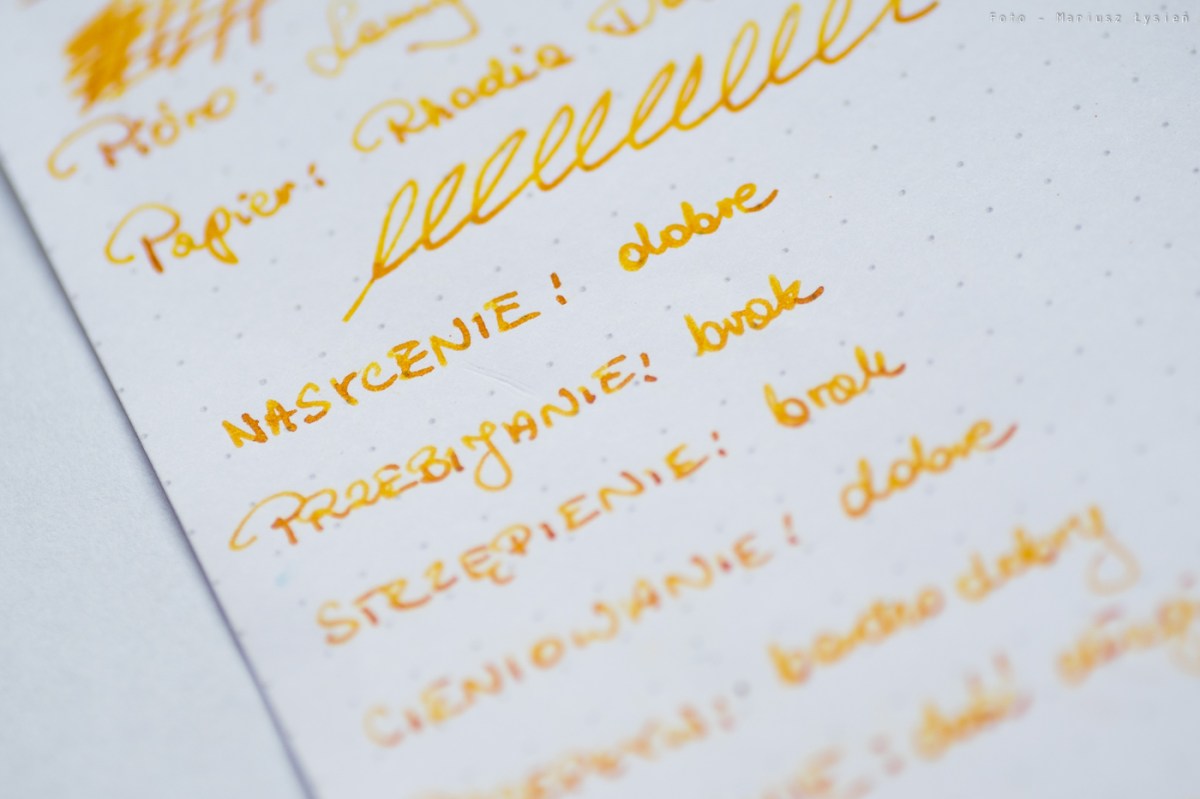 Foto - Mariusz Łysień
Pióro: Lamy
Papier: Rhodia
NASYCENIE: dobre
PRZEBIJANIE: brak
STRZĘPIENIE: brak
CIENIOWANIE: dobre
PRZEPŁYW: bardzo dobry